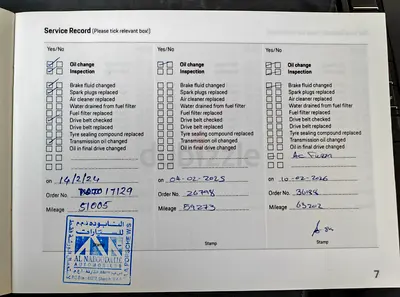 Service Record (Please tick relevant box!)
Yes/No Yes/No Yes/No
Oil change Oil change Oil change
Inspection Inspection Inspection
Brake fluid changed Brake fluid changed Brake fluid changed
Spark plugs replaced Spark plugs replaced Spark plugs replaced
Air cleaner replaced Air cleaner replaced Air cleaner replaced
Water drained from fuel filter Water drained from fuel filter Water drained from fuel filter
Fuel filter replaced Fuel filter replaced Fuel filter replaced
Drive belt checked Drive belt checked Drive belt checked
Drive belt replaced Drive belt replaced Drive belt replaced
Tyre sealing compound replaced Tyre sealing compound replaced Tyre sealing compound replaced
Transmission oil changed Transmission oil changed Transmission oil changed
Oil in final drive changed Oil in final drive changed Oil in final drive changed
dubizzle
AC
on 14/2/24 on 04-02-2025 on 10-02-2026
Order No. 17129 Order No. 26798 Order No.
Mileage 51005 Mileage 59273 Mileage 63202
AL NABOODAH
AUTOMOBILES
Stamp Stamp
7